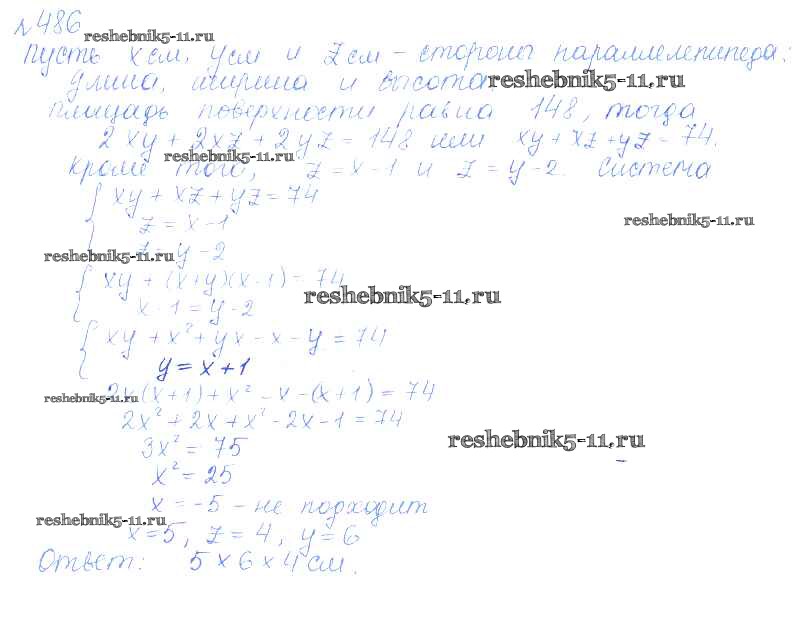 №486
reshebnik5-11.ru
Пусть x см, y см и z см – стороны параллелепипеда:
длина, ширина и высота
reshebnik5-11.ru
площадь поверхности равна 148, тогда
2xy + 2xz + 2yz = 148 или xy + xz + yz = 74.
reshebnik5-11.ru
Кроме того, z = x - 1 и z = y - 2. Система
{ xy + xz + yz = 74
z = x - 1
reshebnik5-11.ru
z = y - 2
reshebnik5-11.ru
{ xy + (x+y)(x-1) = 74
reshebnik5-11.ru
x - 1 = y - 2
{ xy + x² + yx - x - y = 74
y = x + 1
reshebnik5-11.ru
2x(x+1) + x² - x - (x+1) = 74
2x² + 2x + x² - 2x - 1 = 74
reshebnik5-11.ru
3x² = 75
x² = 25
x = -5 – не подходит
reshebnik5-11.ru
x = 5, z = 4, y = 6
Ответ: 5 × 6 × 4 см.